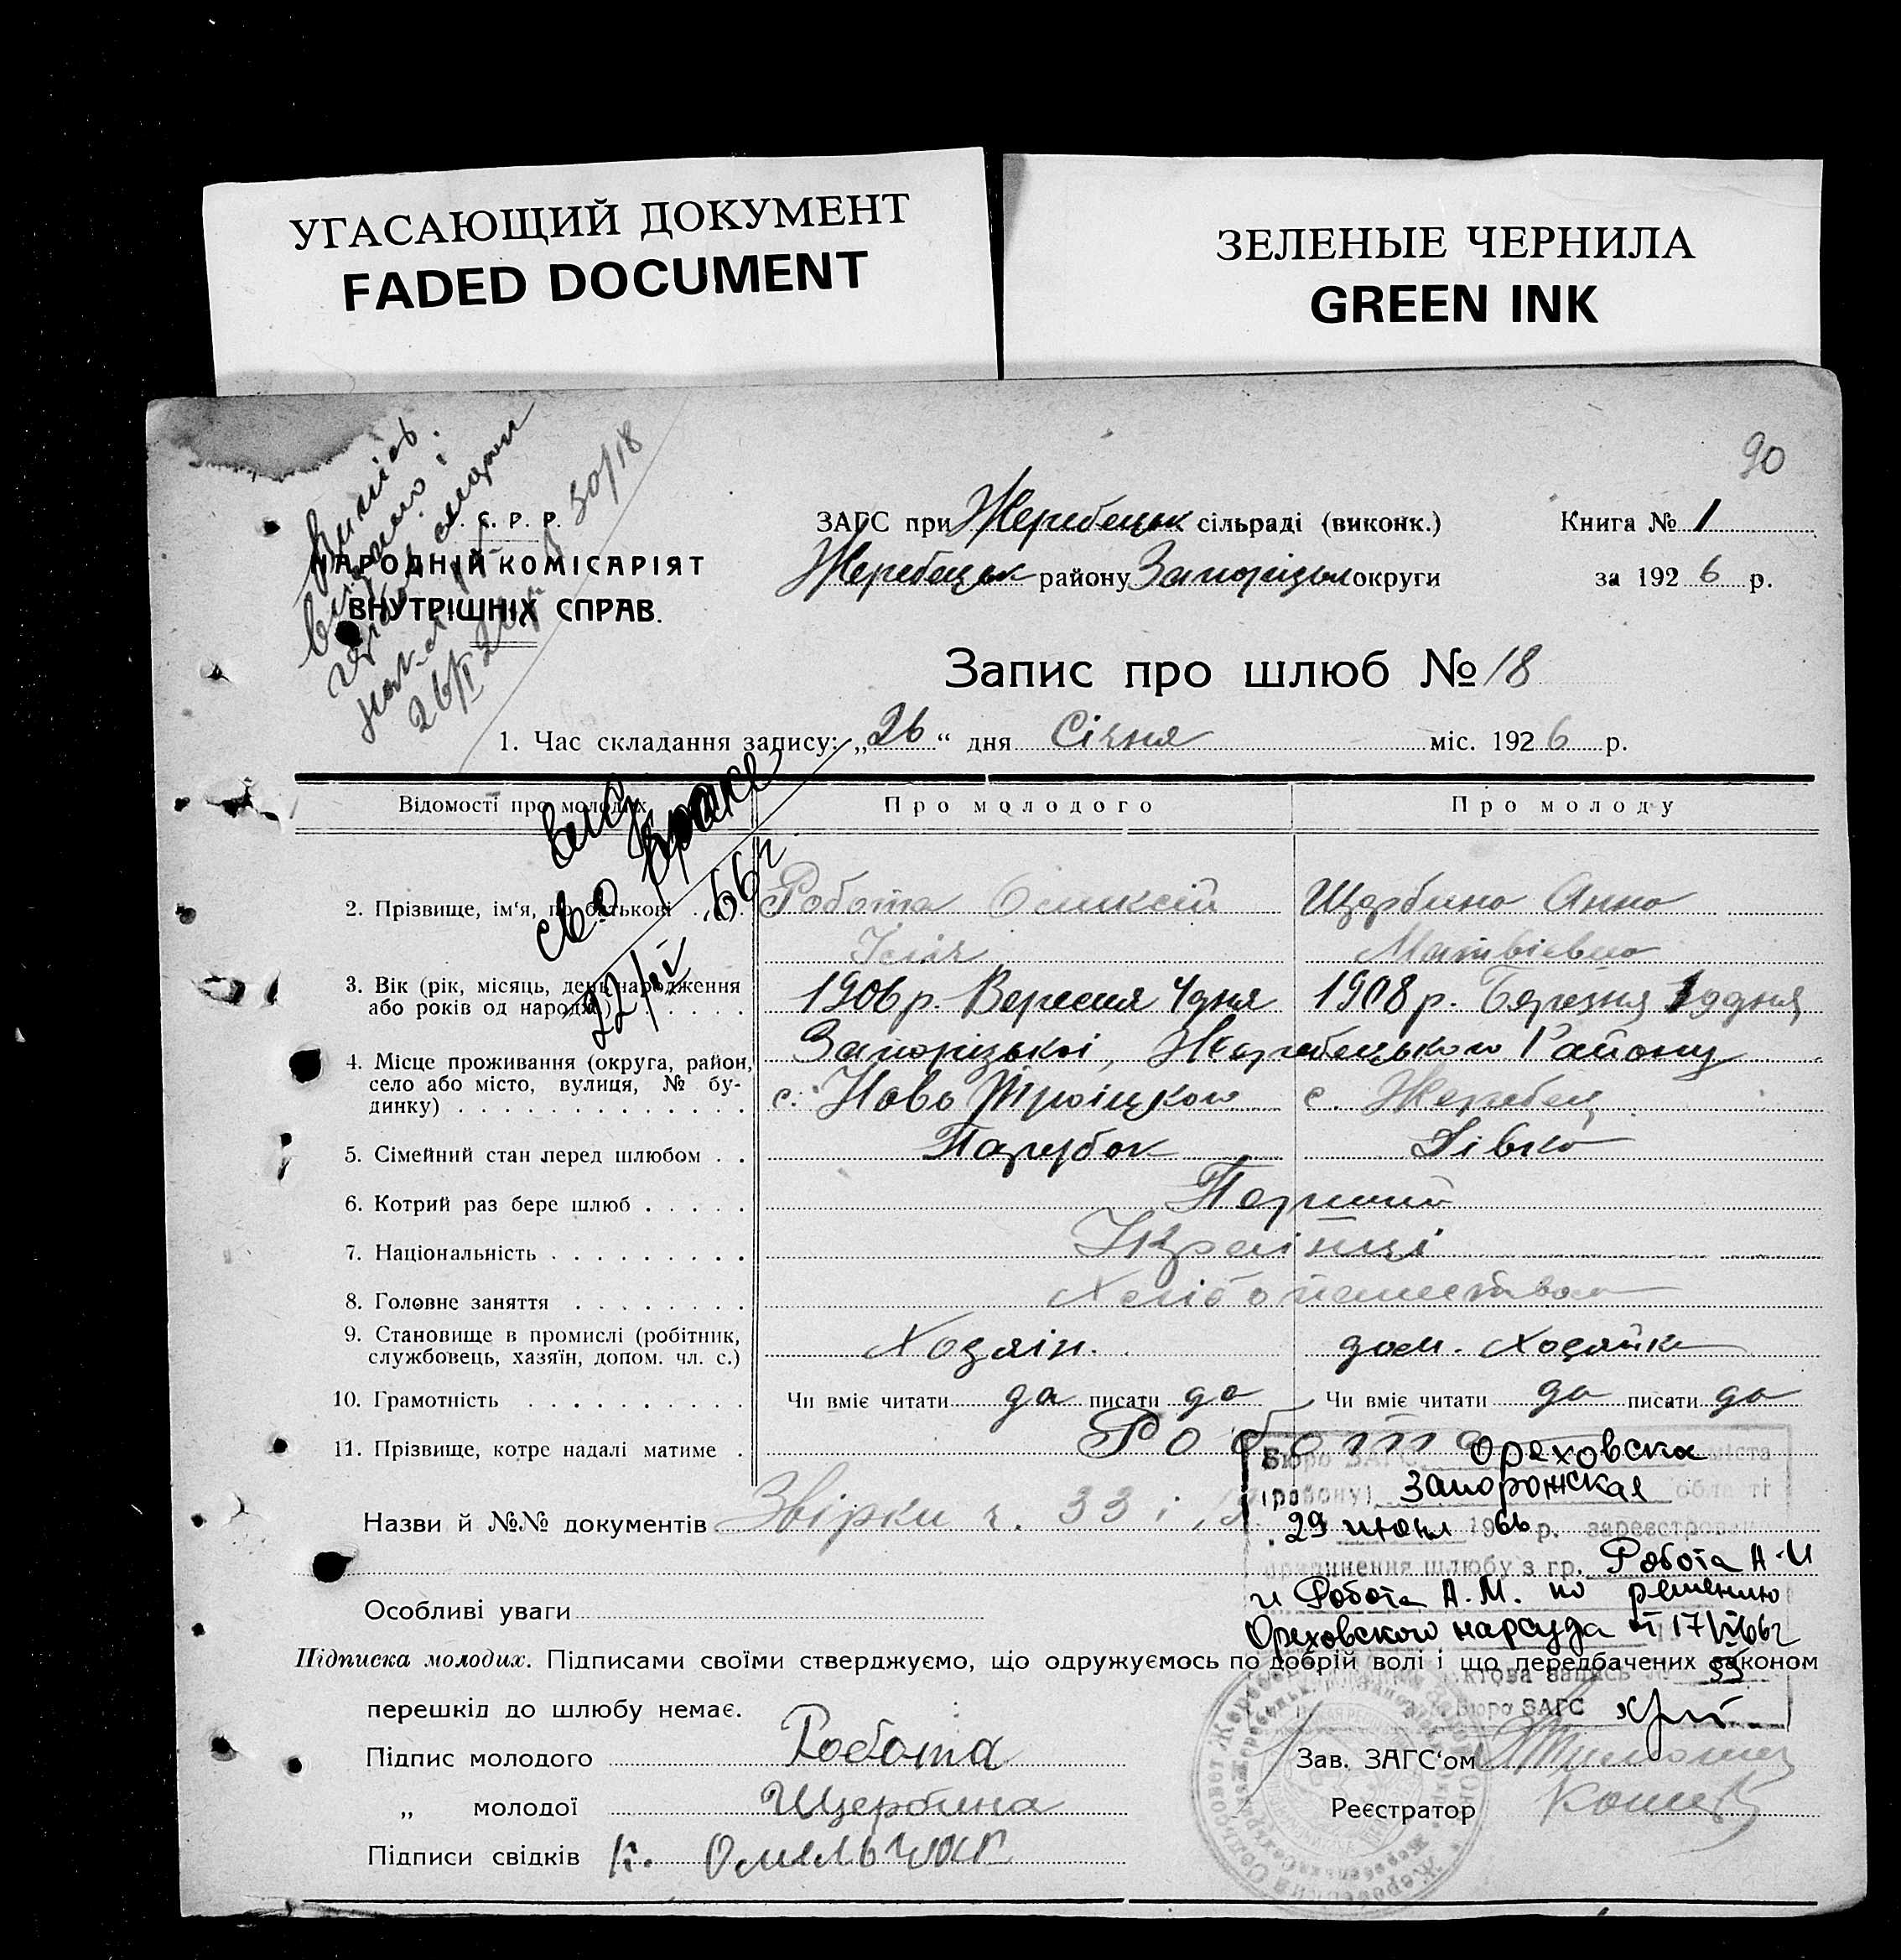 УГАСАЮЩИЙ ДОКУМЕНТ
FADED DOCUMENT
ЗЕЛЕНЫЕ ЧЕРНИЛА
GREEN INK
90
30/18
С. Р. Р.
НАРОДНІЙ КОМІСАРІЯТ
ВНУТРІШНІХ СПРАВ.
ЗАГС при Жеребецьк сільраді (виконк.) Книга № 1
Жеребецьк району Запорізьк округи за 1926 р.
Запис про шлюб № 18
1. Час складання запису: „26“ дня Січня міс. 1926 р.
Відомості про молодих Про молодого Про молоду
2. Прізвище, ім'я, по батькові Робота Оликсій Щербина Анна
Ілліч Матвієвна
3. Вік (рік, місяць, день народження 1906 р. Вересня 4 дня 1908 р. Березня
або років од народж.)
4. Місце проживання (округа, район, Запорізькоі, Жеребецького Району
село або місто, вулиця, № бу- с. Ново Троіцкого с. Жеребец
динку)
5. Сімейний стан перед шлюбом Парубок Дівка
6. Котрий раз бере шлюб Перший
7. Національність Украінці
8. Головне заняття
9. Становище в промислі (робітник, Хозяін. дом. Хозяйка
службовець, хазяїн, допом. чл. с.)
10. Грамотність Чи вміє читати да писати да Чи вміє читати да писати да
11. Прізвище, котре надалі матиме Робота
Бюро ЗАГС Ореховска міста
(району) Запорожская області
Назви й №№ документів Звірки ч. 33 і
29 июня 1966 р. зареєстровано
припинення шлюбу з гр. Робота А.И
и Робота А.М. по решению
Особливі уваги
Ореховского нарсуда от 17/VI 66г
Підписка молодих. Підписами своїми стверджуємо, що одружуємось по добрій волі і що передбачених законом
перешкід до шлюбу немає.
Бюро ЗАГС
Підпис молодого Робота Зав. ЗАГС'ом
„ молодої Щербина Реєстратор
Підписи свідків К. Омельчак